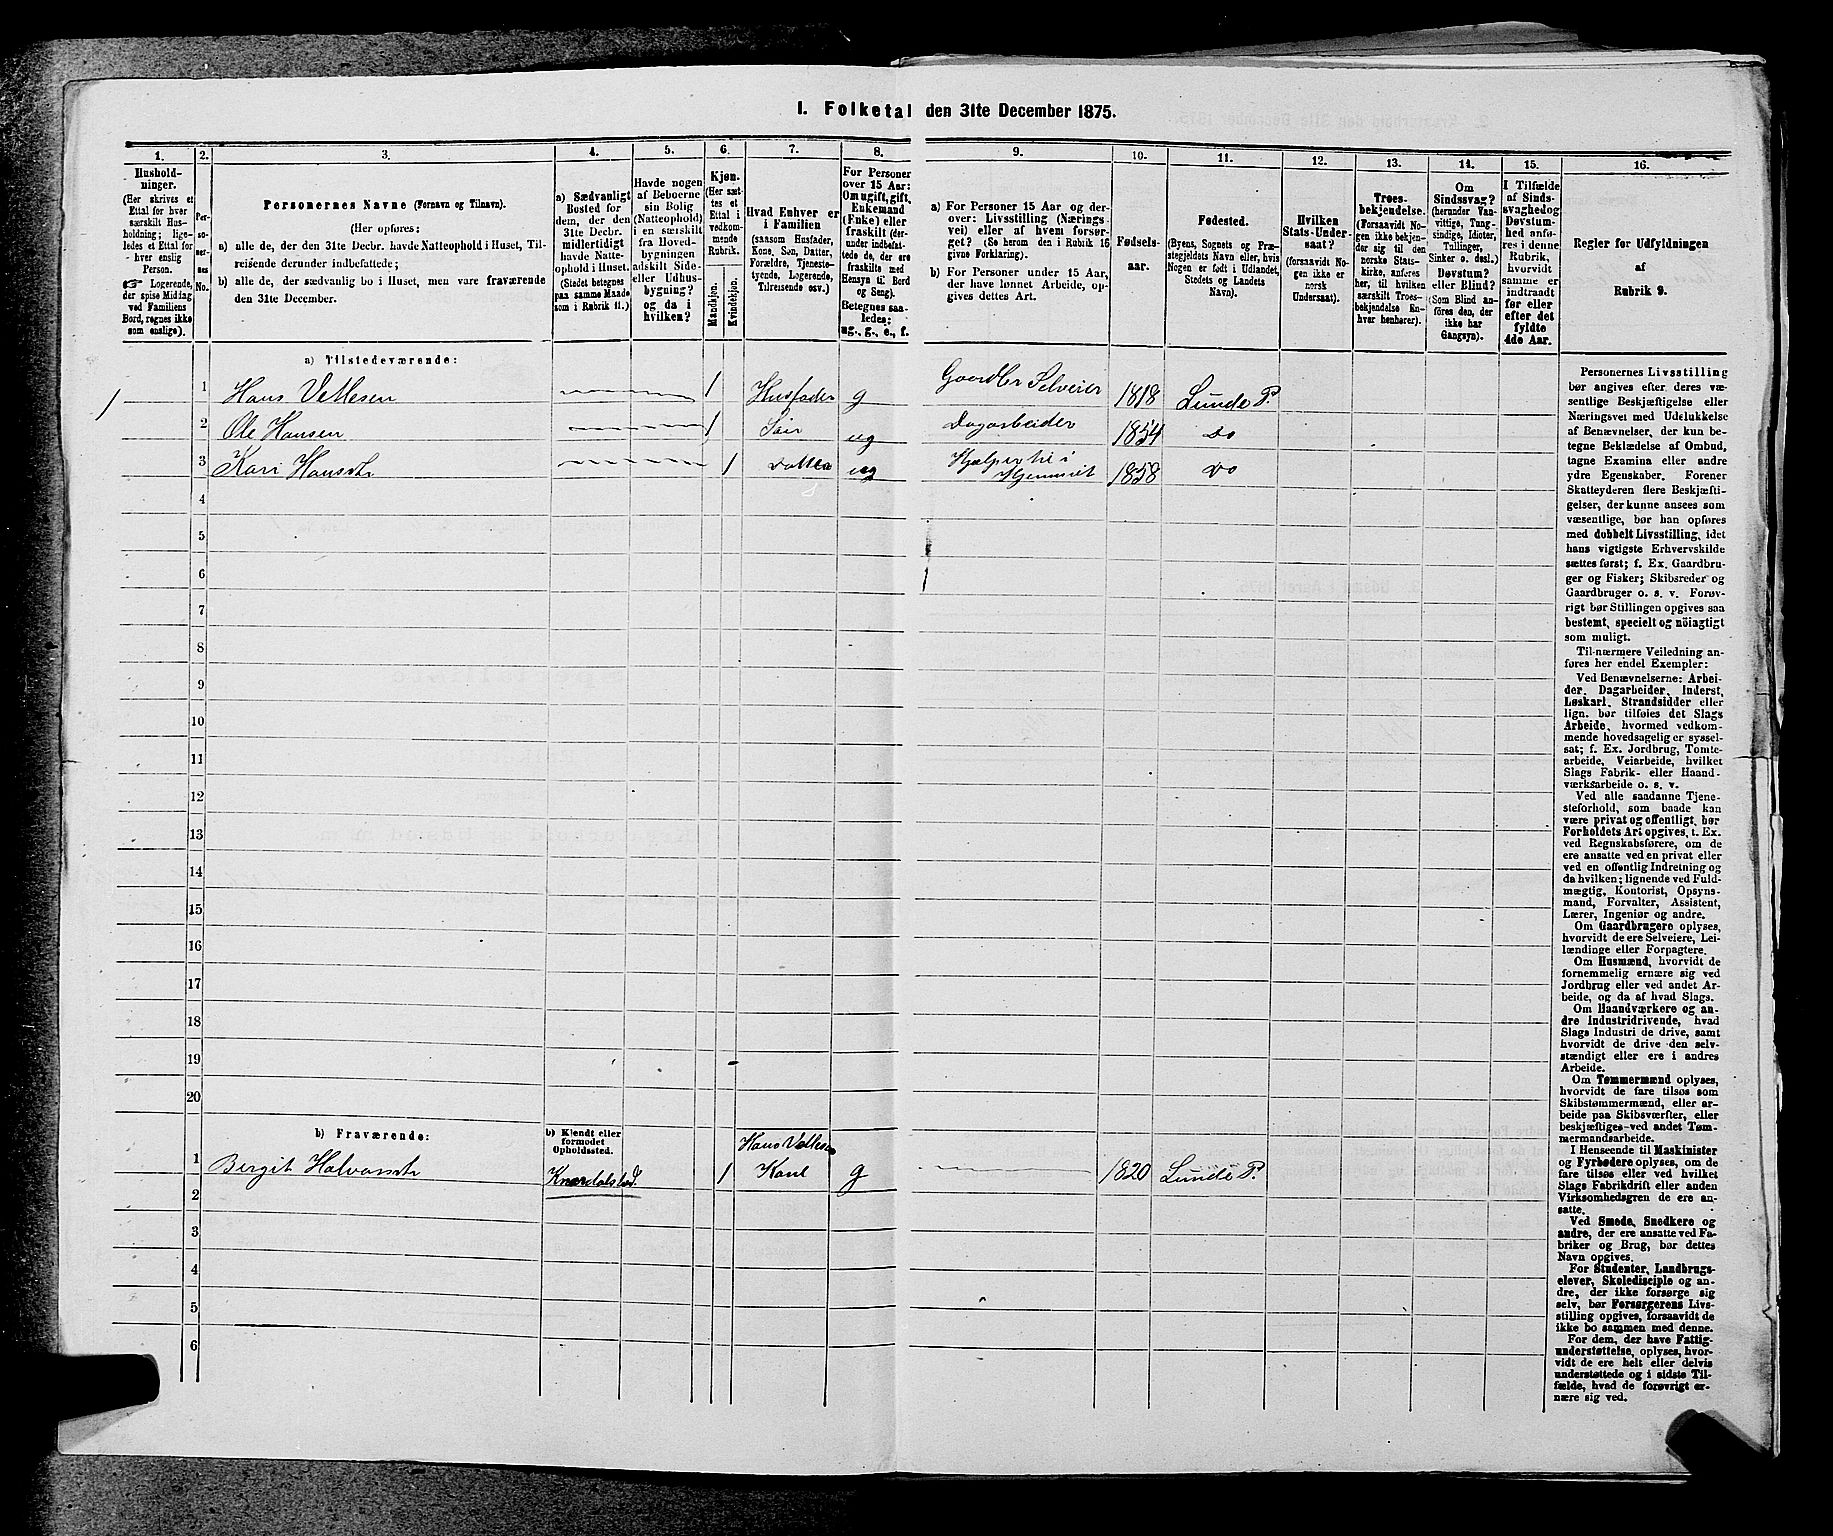 I. Folketal den 31te December 1875.
1. 2. 3. 4. 5. 6. 7. 8. 9. 10. 11. 12. 13. 14. 15. 16.
Hushold-
ninger.
(Her skrives et
Ettal for hver
særskilt Hus-
holdning; lige-
ledes et Ettal for
hver enslig
Person.
☞ Logerende,
der spise Middag
ved Familiens
Bord, regnes ikke
som enslige).
Per-
so-
ner-
nes
No.
Personernes Navne (Fornavn og Tilnavn).
(Her opføres:
a) alle de, der den 31te Decbr. havde Natteophold i Huset, Til-
reisende derunder indbefattede;
b) alle de, der sædvanlig bo i Huset, men vare fraværende
den 31te December.
a) Sædvanligt
Bosted for
dem, der den
31te Decbr.
midlertidigt
havde Natte-
ophold i Huset.
(Stedet betegnes
paa samme Maade
som i Rubrik 11.)
Havde nogen
af Beboerne
sin Bolig
(Natteophold)
i en særskilt
fra Hoved-
bygningen
adskilt Side-
eller Udhus-
bygning?
og da i
hvilken?
Kjøn.
(Her sæt-
tes et
Ettal i
vedkom-
mende
Rubrik.
Mandkjøn.
Kvindekjøn.
Hvad Enhver er
i Familien
(saasom Husfader,
Kone, Søn, Datter,
Forældre, Tjeneste-
tyende, Logerende,
Tilreisende osv.)
For Personer
over 15 Aar:
Om ugift, gift,
Enkemand
(Enke) eller
fraskilt (der-
under indbefat-
tede de, der ere
fraskilte med
Hensyn til Bord
og Seng).
Betegnes saa-
ledes:
ug., g., e., f.
a) For Personer 15 Aar og der-
over: Livsstilling (Nærings-
vei) eller af hvem forsør-
get? (Se herom den i Rubrik 16
givne Forklaring).
b) For Personer under 15 Aar,
der have lønnet Arbeide, op-
gives dettes Art.
Fødsels-
aar.
Fødested.
(Byens, Sognets og Præ-
stegjeldets Navn eller, hvis
Nogen er født i Udlandet,
Stedets og Landets
Navn).
Hvilken
Stats-Under-
saat?
(forsaavidt No-
gen ikke er
norsk
Undersaat).
Troes-
bekjendelse.
(Forsaavidt No-
gen ikke bekjen-
der sig til den
norske Stats-
kirke, anføres
her, til hvilken
særskilt Troes-
bekjendelse En-
hver henhører).
Om
Sindssvag?
(herunder Van-
vittige, Tung-
sindige, Idioter,
Tullinger,
Sinker o. desl.)
Døvstum?
eller Blind?
(Som Blind an-
føres den, der
ikke har
Gangsyn).
I Tilfælde
af Sinds-
svaghed og
Døvstum-
hed anfø-
res i denne
Rubrik,
hvorvidt
samme er
indtraadt
før eller
efter det
fyldte
4de Aar.
Regler for Udfyldningen
af
Rubrik 9.
a) Tilstedeværende:
1 1 Hans Vettesen 1 Husfader g Gaardbr Selveier 1818 Lunde P.
2 Ole Hansen 1 Søn ug Dagarbeider 1854 Do
3 Kari Hansdtr 1 datter ug Hjælper til i Hjemmet 1858 Do
4
5
6
7
8
9
10
11
12
13
14
15
16
17
18
19
20
b) Fraværende:
b) Kjendt eller
formodet
Opholdssted.
1 Birgit Halvorsdtr 1 Hans Vettesen Kone g 1820 Lunde P.
2
3
4
5
6
Personernes Livsstilling
bør angives efter deres væ-
sentlige Beskjæftigelse eller
Næringsvei med Udelukkelse
af Benævnelser, der kun be-
tegne Beklædelse af Ombud,
tagne Examina eller andre
ydre Egenskaber. Forener
Skatteyderen flere Beskjæfti-
gelser, der kunne ansees som
væsentlige, bør han opføres
med dobbelt Livsstilling, idet
hans vigtigste Erhvervskilde
sættes først; f. Ex. Gaardbru-
ger og Fisker; Skibsreder og
Gaardbruger o. s. v. Forøv-
rigt bør Stillingen opgives saa
bestemt, specielt og nöiagtigt
som muligt.
Til nærmere Veiledning an-
føres her endel Exempler:
Ved Benævnelserne: Arbei-
der, Dagarbeider, Inderst,
Løskarl, Strandsidder eller
lign. bør tilføies det Slags
Arbeide, hvormed vedkom-
mende hovedsagelig er syssel-
sat; f. Ex. Jordbrug, Tomte-
arbeide, Veiarbeide, hvilket
Slags Fabrik- eller Haand-
værksarbeide o. s. v.
Ved alle saadanne Tjene-
steforhold, som baade kan
være privat og offentligt, bør
Forholdets Art opgives, t. Ex.
ved Regnskabsførere, om de
ere ansatte ved en privat eller
ved en offentlig Indretning og
da hvilken; lignende ved Fuld-
mægtig, Kontorist, Opsyns-
mand, Forvalter, Assistent,
Lærer, Ingeniør og andre.
Om Gaardbrugere oplyses,
hvorvidt de ere Selveiere, Lei-
lændinge eller Forpagtere.
Om Husmænd, hvorvidt de
fornemmelig ernære sig ved
Jordbrug eller ved andet Ar-
beide, og da af hvad Slags.
Om Haandværkere og an-
dre Industridrivende, hvad
Slags Industri de drive, samt
hvorvidt de drive den selv-
stændigt eller ere i andres
Arbeide.
Om Tømmermænd oplyses,
hvorvidt de fare tilsøs som
Skibstømmermænd, eller ar-
beide paa Skibsværfter, eller
beskjæftiges ved andet Tøm-
mermandsarbeide.
I Henseende til Maskinister
og Fyrbødere oplyses, om de
fare tilsøs eller ved hvilket
Slags Fabrikdrift eller anden
Virksomhedsgren de ere an-
satte.
Ved Smede, Snedkere og
andre, der ere ansatte ved Fa-
briker og Brug, bør dettes
Navn opgives.
For Studenter, Landbrugs-
elever, Skoledisciple og an-
dre, der ikke forsørge sig
selv, bør Forsørgerens Livs-
stilling opgives, forsaavidt de
ikke bo sammen med denne.
For dem, der have Fattig-
understøttelse, oplyses, hvor-
vidt de ere helt eller delvis
understøttede og i sidste Til-
fælde, hvad de forøvrigt er-
nære sig ved.